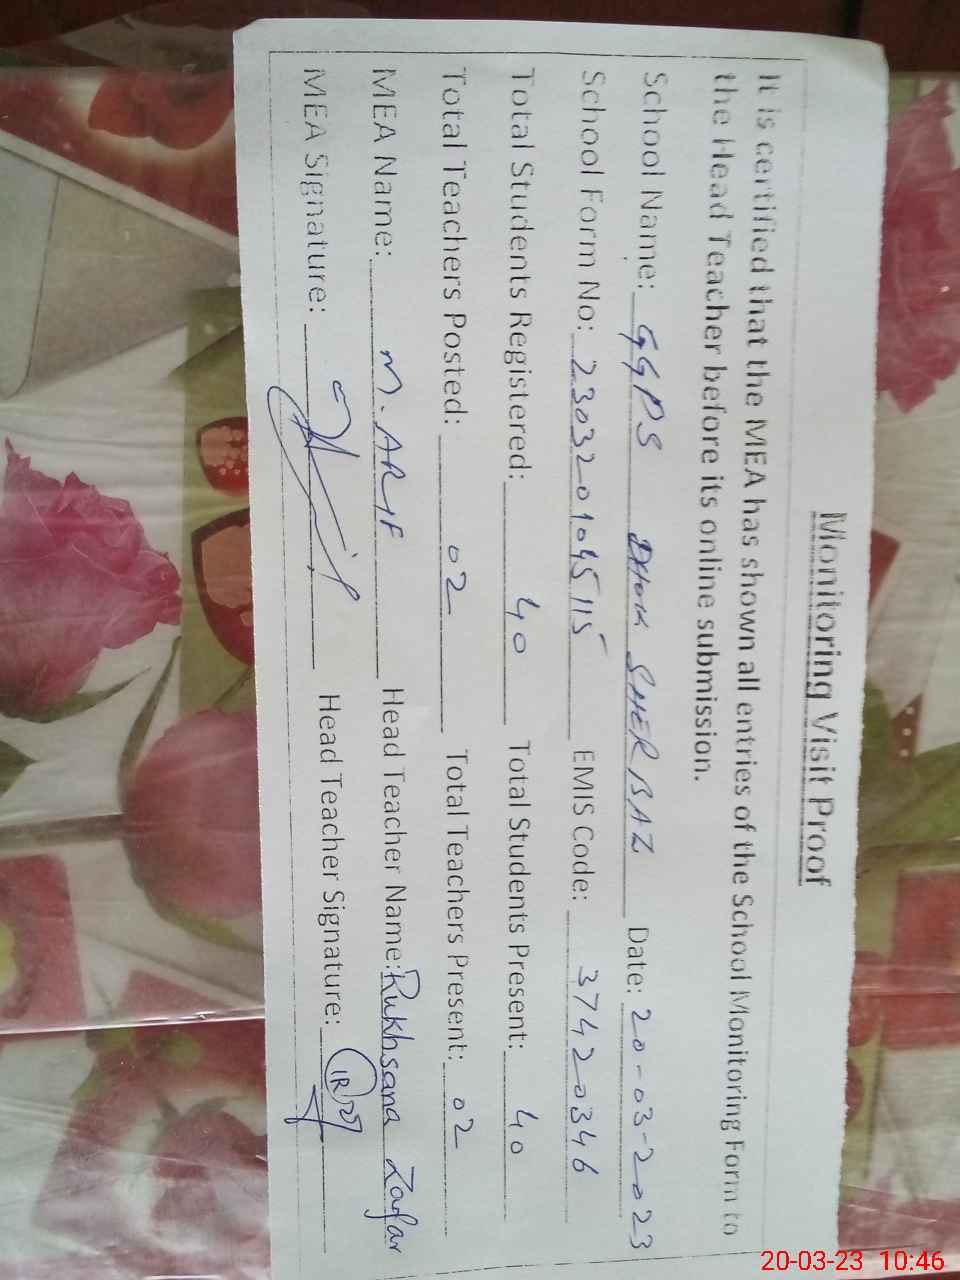 Monitoring Visit Proof
It is certified that the MEA has shown all entries of the School Monitoring Form to
the Head Teacher before its online submission.
School Name: GGPS DHOK SHER BAZ Date: 20-03-2023
School Form No: 2303201045115 EMIS Code: 37420346
Total Students Registered: 40 Total Students Present: 40
Total Teachers Posted: 02 Total Teachers Present: 02
MEA Name: M. ARIF Head Teacher Name: Rukhsana Zafar
MEA Signature: Head Teacher Signature:
20-03-23 10:46